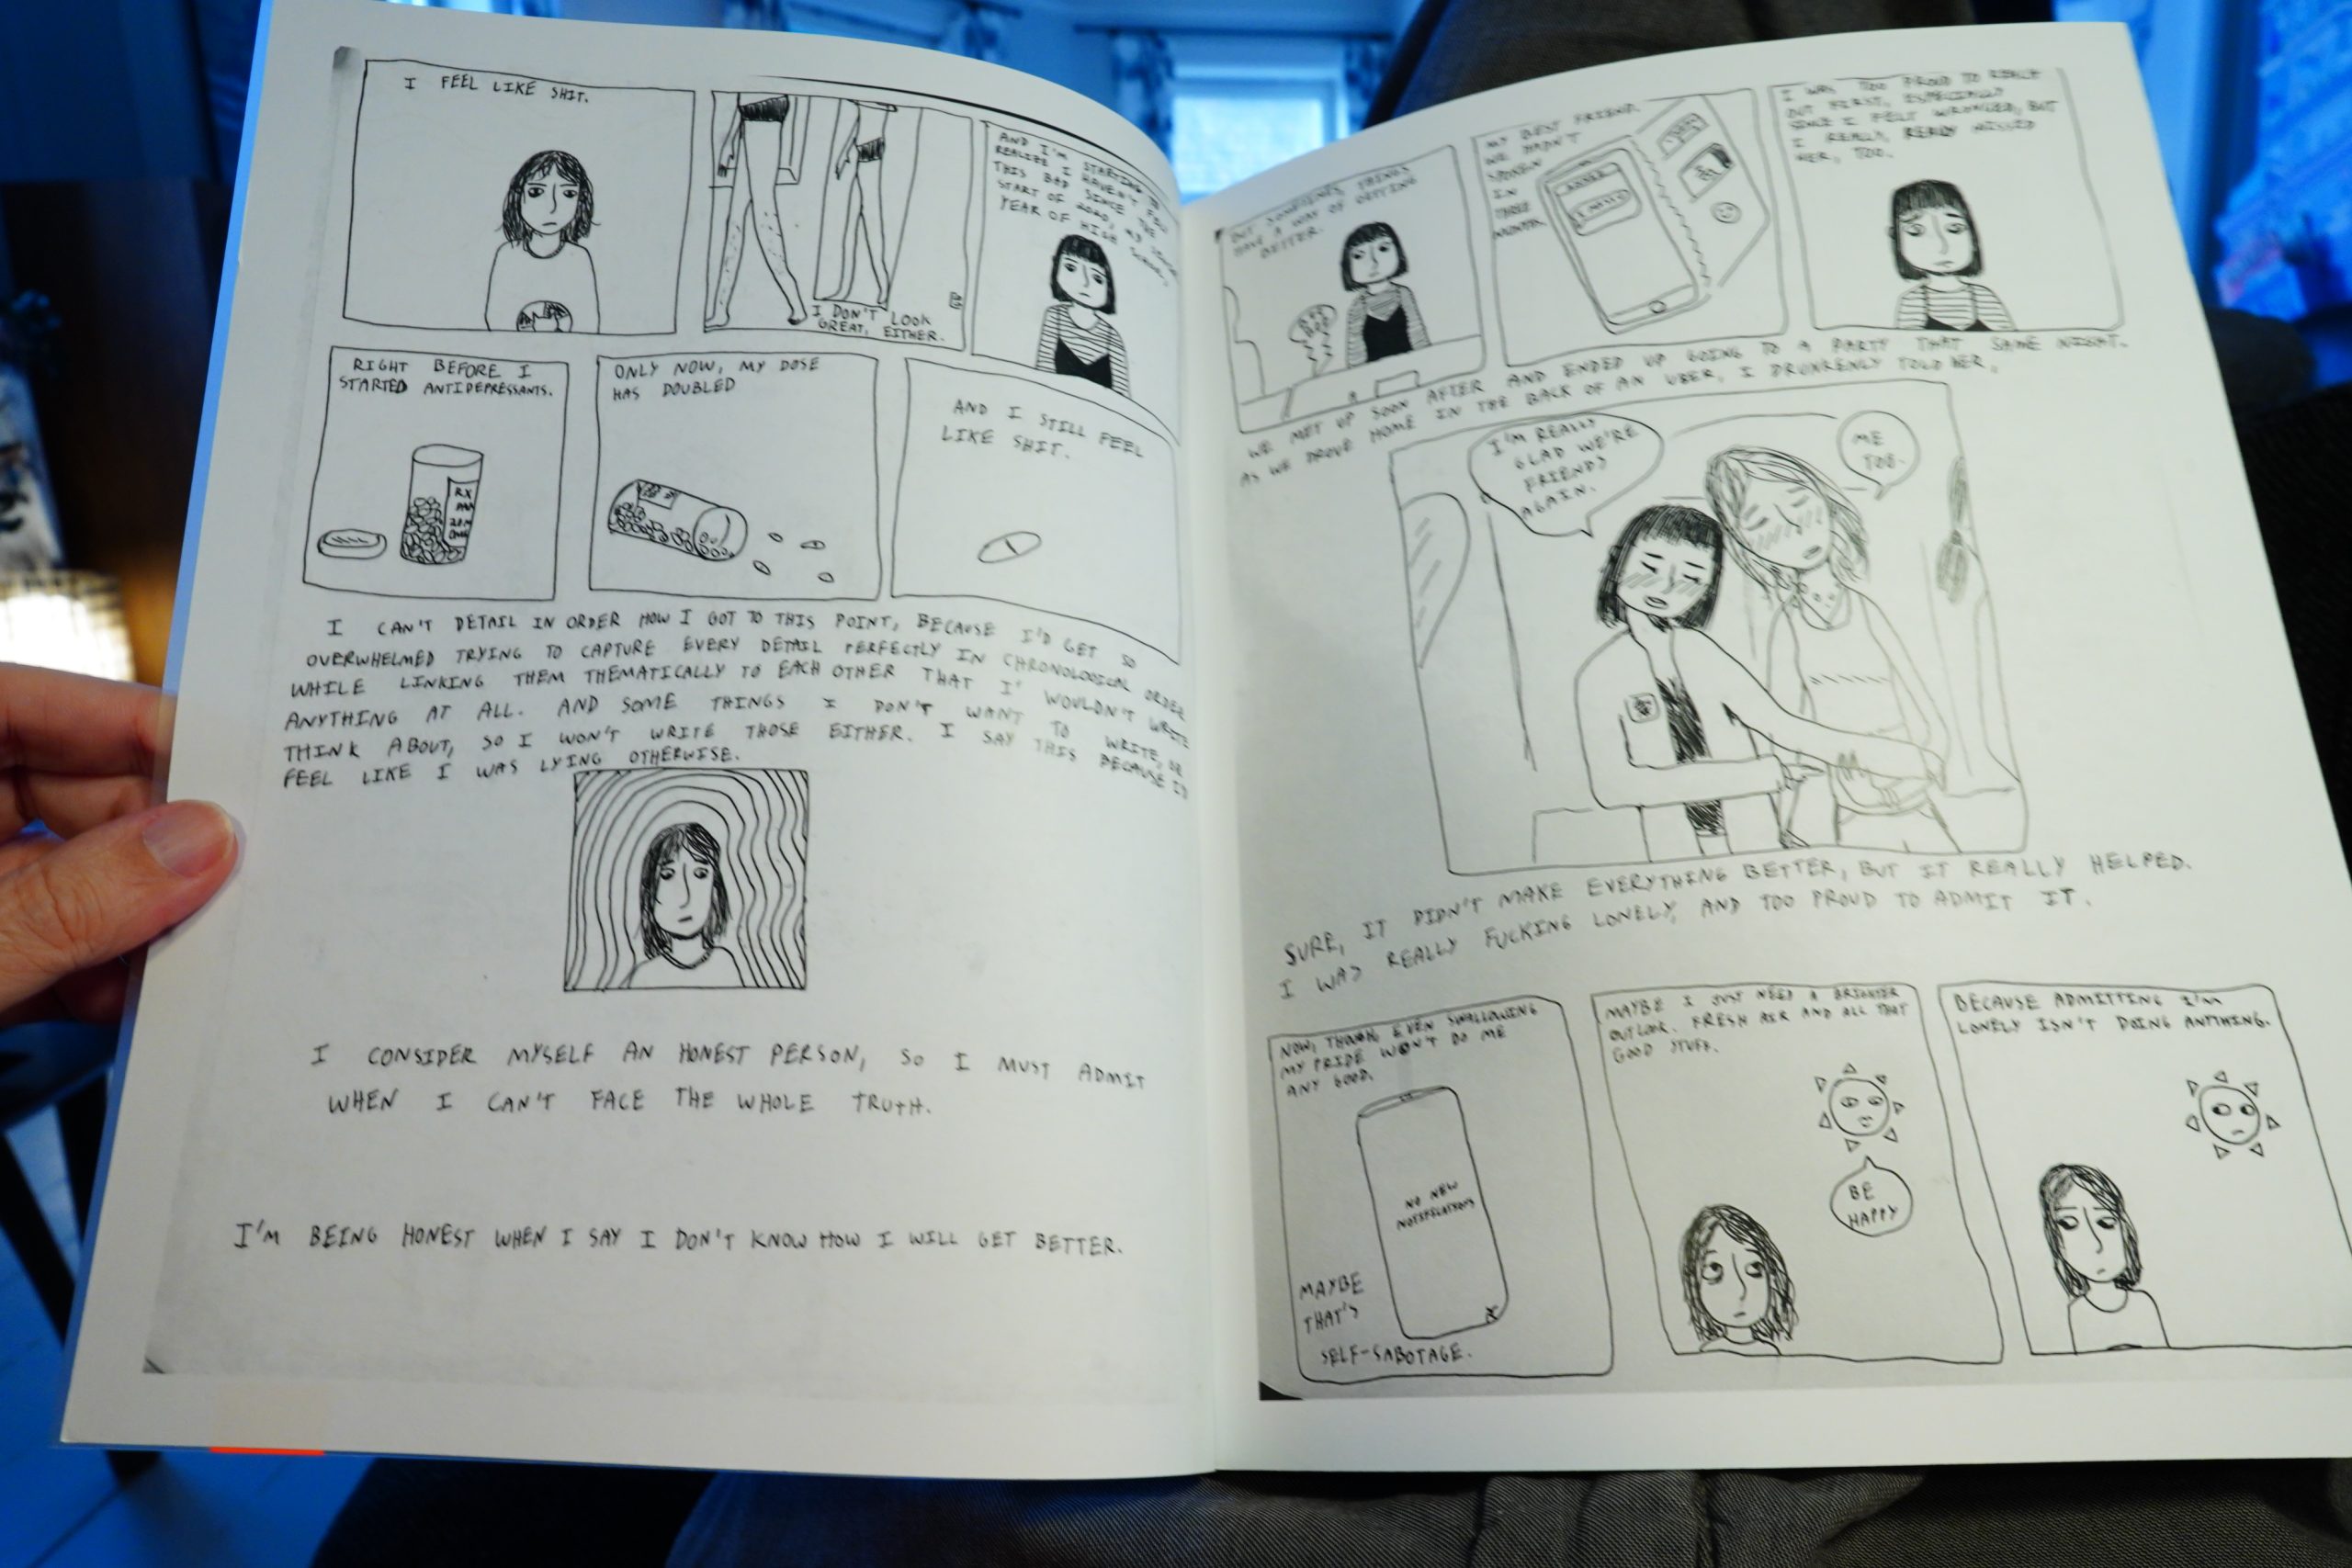 I FEEL LIKE SHIT.
I DON'T LOOK
GREAT, EITHER.
AND I'M STARTING TO
REALIZE I HAVEN'T FELT
THIS BAD SINCE THE
START OF 2020, MY SENIOR
YEAR OF HIGH SCHOOL,
RIGHT BEFORE I
STARTED ANTIDEPRESSANTS.
RX
ONLY NOW, MY DOSE
HAS DOUBLED
AND I STILL FEEL
LIKE SHIT.
I CAN'T DETAIL IN ORDER HOW I GOT TO THIS POINT, BECAUSE I'D GET SO
OVERWHELMED TRYING TO CAPTURE EVERY DETAIL PERFECTLY IN CHRONOLOGICAL ORDER
WHILE LINKING THEM THEMATICALLY TO EACH OTHER THAT I WOULDN'T WRITE
ANYTHING AT ALL. AND SOME THINGS I DON'T WANT TO WRITE, OR
THINK ABOUT, SO I WON'T WRITE THOSE EITHER. I SAY THIS BECAUSE I'D
FEEL LIKE I WAS LYING OTHERWISE.
I CONSIDER MYSELF AN HONEST PERSON, SO I MUST ADMIT
WHEN I CAN'T FACE THE WHOLE TRUTH.
I'M BEING HONEST WHEN I SAY I DON'T KNOW HOW I WILL GET BETTER.
BUT SOMETIMES, THINGS
HAVE A WAY OF GETTING
BETTER.
MY BEST FRIEND.
WE HADN'T
SPOKEN
IN
THREE
MONTHS.
I WAS TOO PROUD TO REACH
OUT FIRST, ESPECIALLY
SINCE I FELT WRONGED, BUT
I REALLY, REALLY MISSED
HER, TOO.
WE MET UP SOON AFTER AND ENDED UP GOING TO A PARTY THAT SAME NIGHT.
AS WE DROVE HOME IN THE BACK OF AN UBER, I DRUNKENLY TOLD HER,
I'M REALLY
GLAD WE'RE
FRIENDS
AGAIN.
ME
TOO.
SURE, IT DIDN'T MAKE EVERYTHING BETTER, BUT IT REALLY HELPED.
I WAS REALLY FUCKING LONELY, AND TOO PROUD TO ADMIT IT.
NOW, THOUGH, EVEN SWALLOWING
MY PRIDE WON'T DO ME
ANY GOOD.
NO NEW
NOTIFICATIONS
MAYBE
THAT'S
SELF-SABOTAGE.
MAYBE I JUST NEED A BRIGHTER
OUTLOOK. FRESH AIR AND ALL THAT
GOOD STUFF.
BE
HAPPY
BECAUSE ADMITTING I'M
LONELY ISN'T DOING ANYTHING.